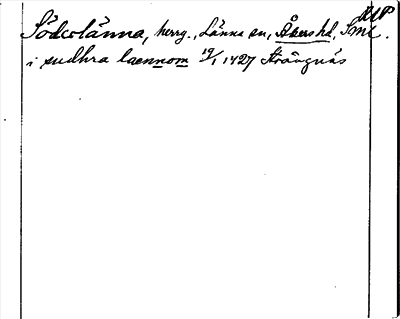 Söderlänna, herrg., Länna sn, Åkers hd, Sml.
i sudhra laennom 19/1 1427 Strängnäs